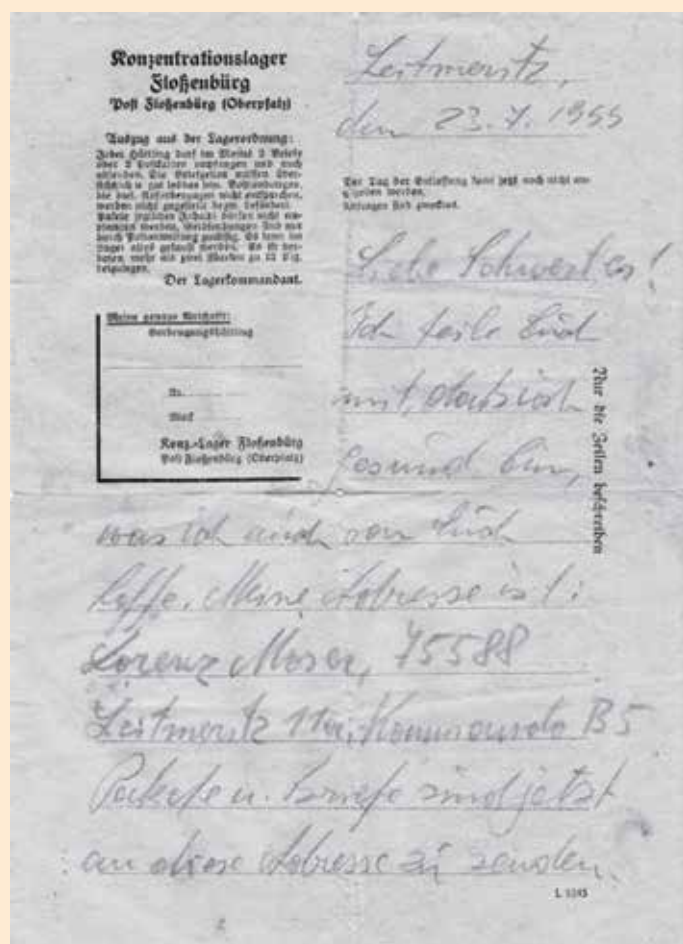 Konzentrationslager
Floßenbürg
Post Floßenbürg (Oberpfalz)
Auszug aus der Lagerordnung:
Jeder Häftling darf im Monat 2 Briefe
oder 2 Postkarten empfangen und auch
absenden. Die Briefzeilen müssen über-
sichtlich u. gut lesbar sein. Postsendungen,
die diesen Anforderungen nicht entsprechen,
werden nicht zugestellt bezw. befördert.
Pakete jeglichen Inhalts dürfen nicht em-
pfangen werden, Geldsendungen sind nur
durch Postanweisung zulässig. Es kann im
Lager alles gekauft werden. Es ist ver-
boten, mehr als zwei Marken zu 12 Pfg.
beizulegen.
Der Lagerkommandant.
Meine genaue Anschrift:
Nr.
Block
Konz.-Lager Floßenbürg
Post Floßenbürg (Oberpfalz)
Leitmeritz,
den 23.
Der Tag der Entlassung kann jetzt noch nicht an-
gegeben werden.
sind zwecklos.
Liebe Schwester!
Ich teile Euch
mit, daß ich
gesund bin,
was ich auch von Euch
hoffe. Meine Adresse ist:
Lorenz Moser, 75588
Leitmeritz Kommando B5
Pakete u. Briefe sind jetzt
an diese Adresse zu senden.
Nur die Zeilen beschreiben